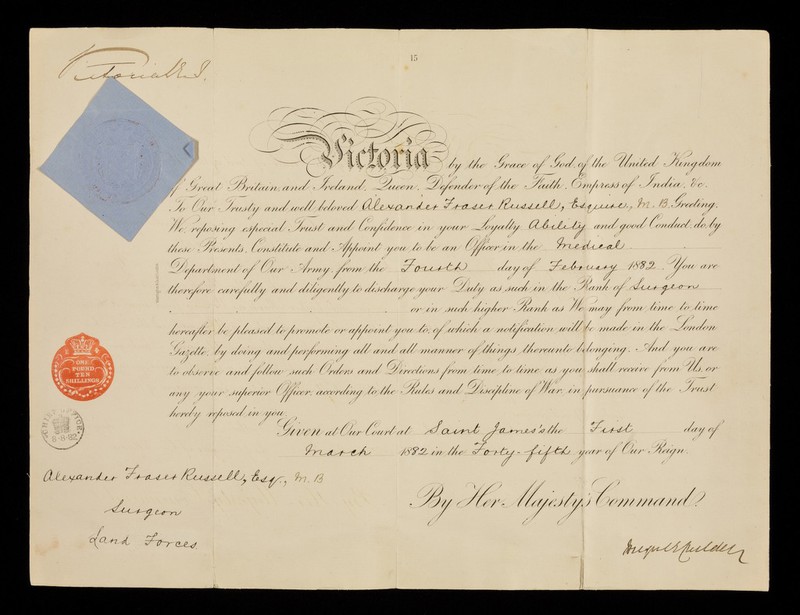 15
Victoria R I
Victoria by the Grace of God of the United Kingdom
of Great Britain and Ireland, Queen, Defender of the Faith, Empress of India, &c.
To Our Trusty and well beloved Alexander Fraser Russell, Esquire, M.B. Greeting.
We, reposing especial Trust and Confidence in your Loyalty Ability and good Conduct, do, by
these Presents, Constitute and Appoint you to be an Officer in the Medical
Department of Our Army from the Fourth day of February 1882. You are
therefore carefully and diligently to discharge your Duty as such in the Rank of Surgeon
or in such higher Rank as We may from time to time
hereafter be pleased to promote or appoint you to, of which a notification will be made in the London
Gazette, by doing and performing all and all manner of things thereunto belonging. And you are
to observe and follow such Orders and Directions from time to time as you shall receive from Us, or
any your superior Officer, according to the Rules and Discipline of War, in pursuance of the Trust
hereby reposed in you.
Given at Our Court at Saint James's the First day of
March 1882 in the Forty-fifth year of Our Reign.
By Her Majesty's Command.
ONE
POUND
TEN
SHILLINGS
8·8·82
Alexander Fraser Russell, Esq., M.B
Surgeon
Land Forces.